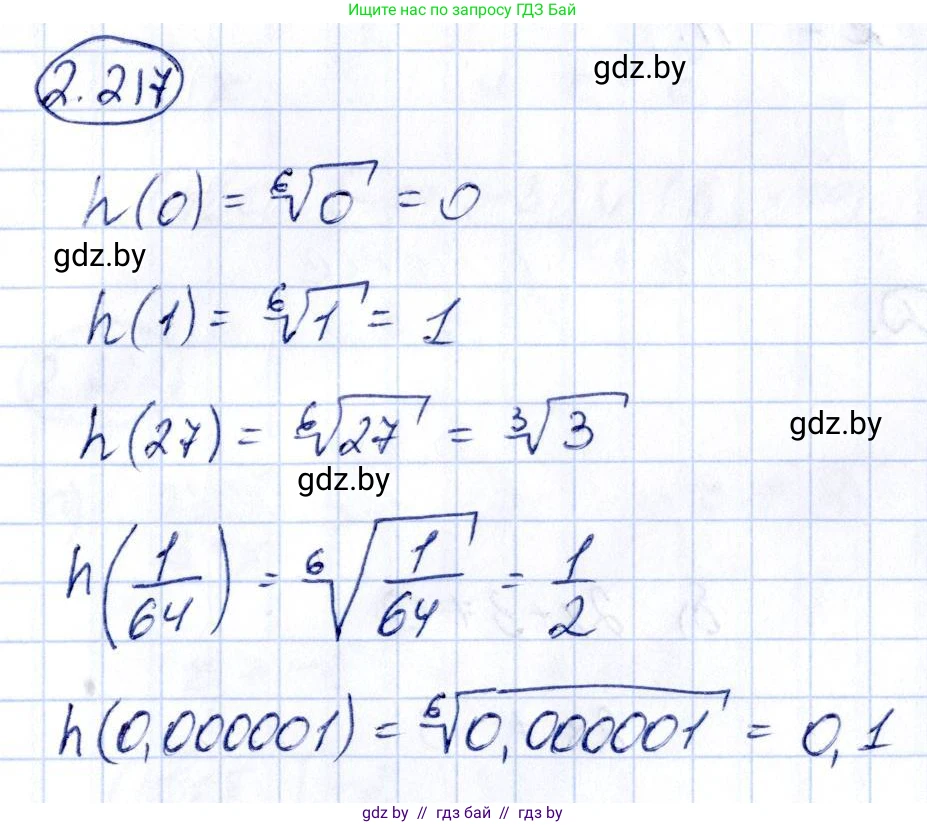 Ищите нас по запросу ГДЗ Бай
2.217
gdz.by
h(0) = ⁶√0 = 0
gdz.by
h(1) = ⁶√1 = 1
h(27) = ⁶√27 = ³√3
gdz.by
gdz.by
h(1/64) = ⁶√(1/64) = 1/2
h(0,000001) = ⁶√0,000001 = 0,1
gdz.by // гдз бай // gdz.by